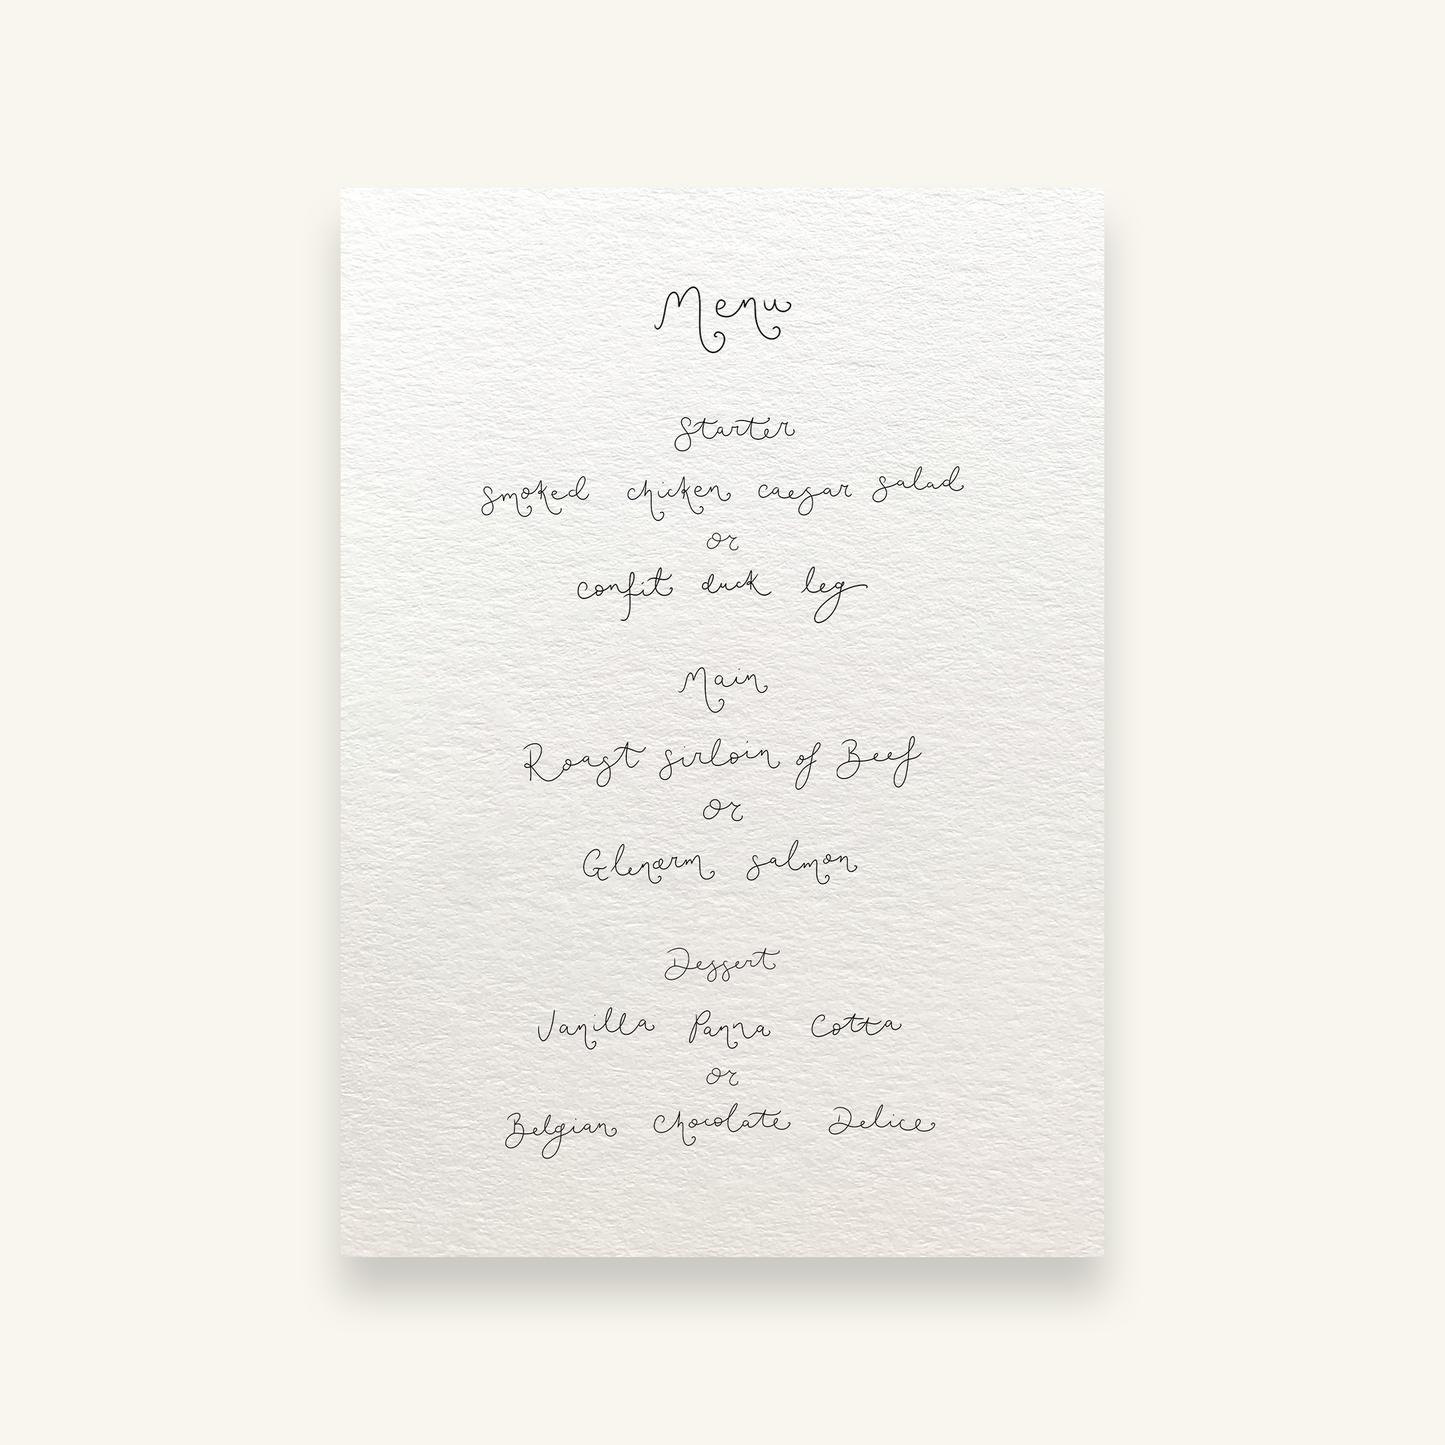 Menu
Starter
smoked chicken caesar salad
or
confit duck leg
Main
Roast sirloin of Beef
or
Glenarm salmon
Dessert
Vanilla Panna Cotta
or
Belgian Chocolate Delice